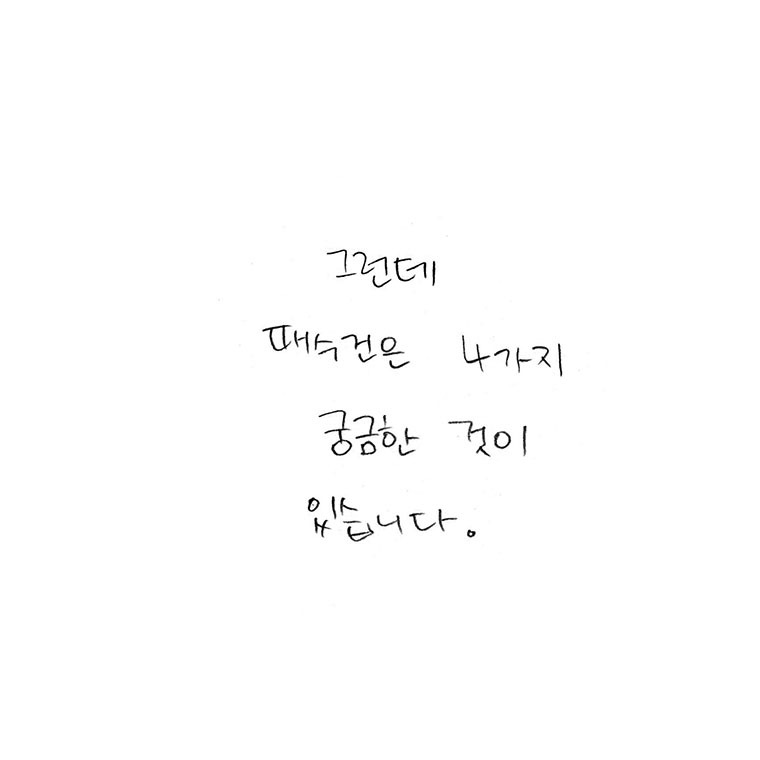 그런데
때수건은 4가지
궁금한 것이
있습니다.